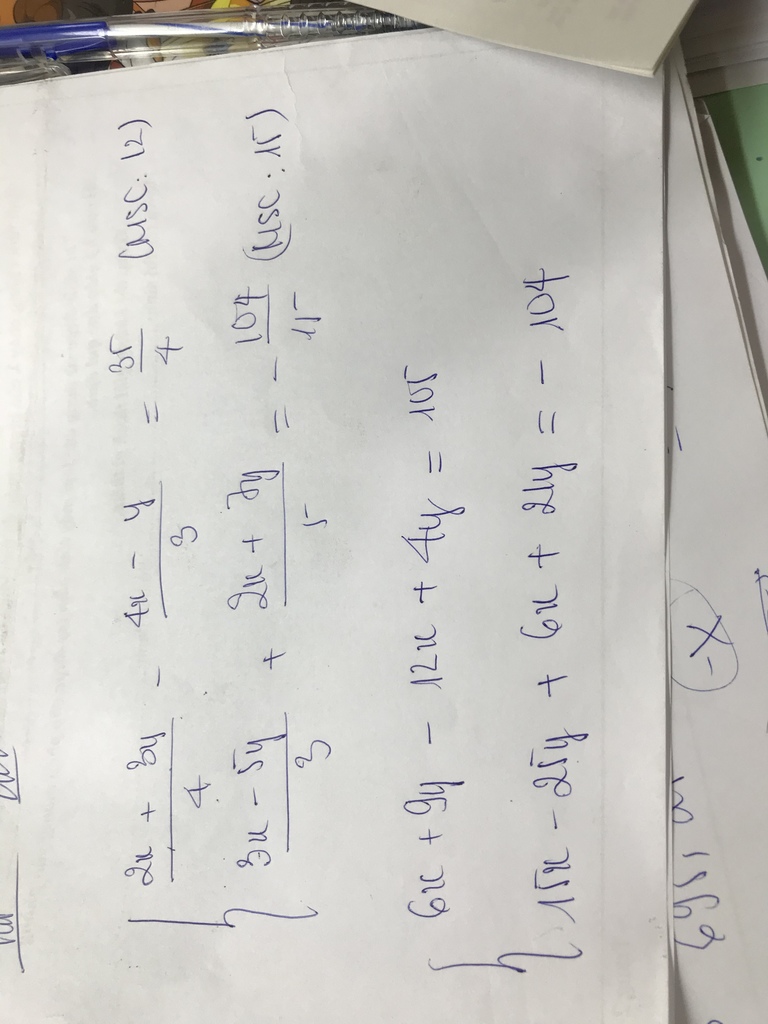 { (2x + 3y)/4 - (4x - y)/3 = 35/4 (MSC: 12)
{ (3x - 5y)/3 + (2x + 7y)/5 = - 104/15 (MSC: 15)
{ 6x + 9y - 12x + 4y = 105
{ 15x - 25y + 6x + 21y = - 104
-x